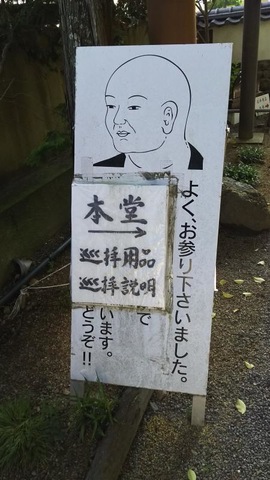 よく、お参り下さいました。
で
います。
どうぞ!!
本堂
→
巡拝用品
巡拝説明